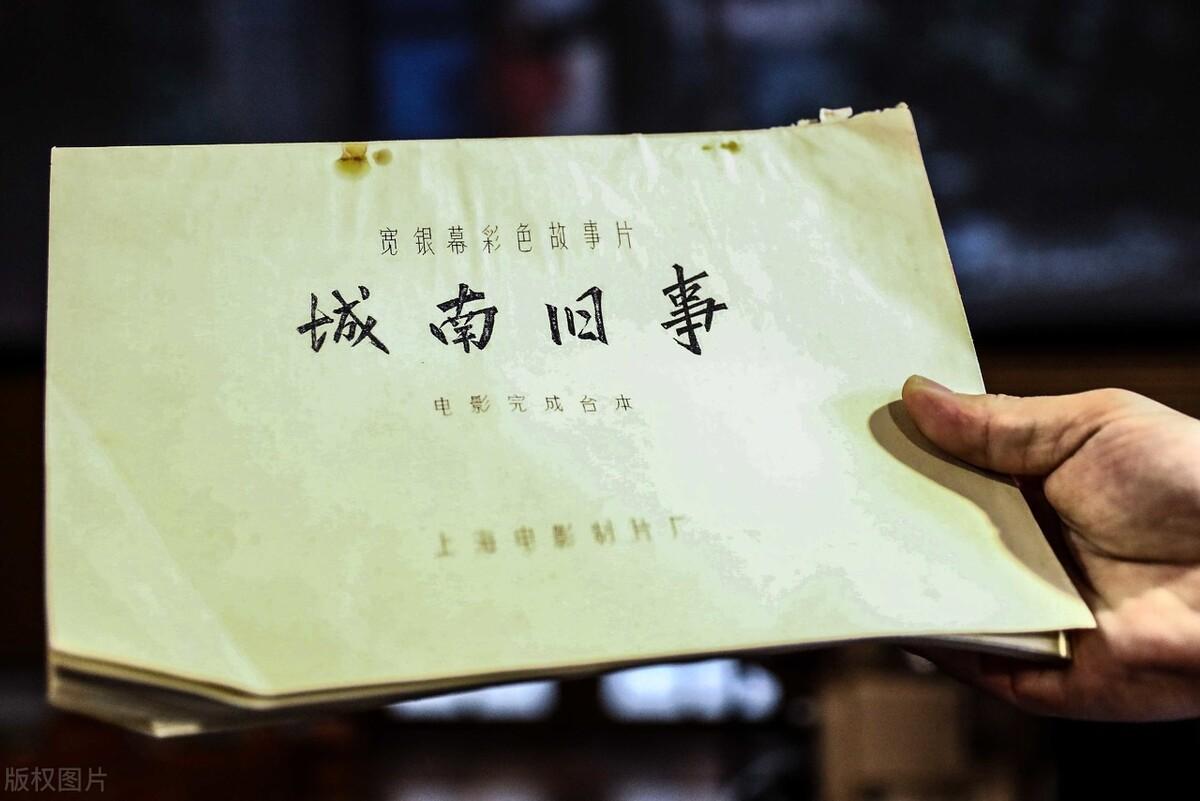 宽银幕彩色故事片
城南旧事
电影完成台本
上海电影制片厂
版权图片